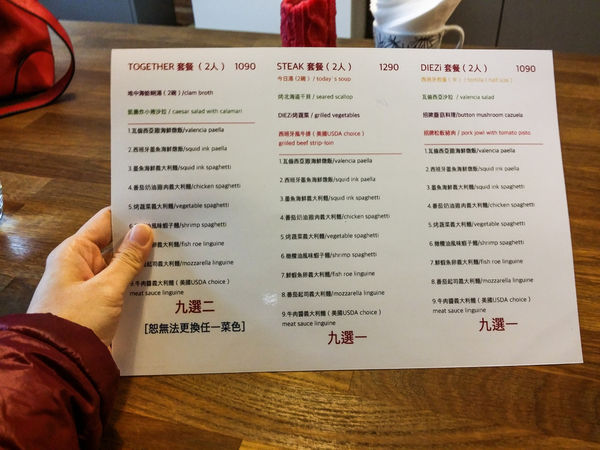 TOGETHER 套餐（2人） 1090
地中海蛤蜊湯（2碗）/clam broth
凱薩炸小捲沙拉 / caesar salad with calamari
1.瓦倫西亞跟海鮮燉飯/valencia paella
2.西班牙墨魚海鮮燉飯/squid ink paella
3.墨魚海鮮義大利麵/squid ink spaghetti
4.番茄奶油雞肉義大利麵/chicken spaghetti
5.烤蔬菜義大利麵/vegetable spaghetti
風味蝦子麵/shrimp spaghetti
卵義大利麵/fish roe linguine
起司義大利麵/mozzarella linguine
9.牛肉醬義大利麵（美國USDA choice）
meat sauce linguine
九選二
[恕無法更換任一菜色]
STEAK 套餐（2人） 1290
今日湯（2碗）/ today's soup
烤北海道干貝 / seared scallop
DIEZi烤蔬菜 / grilled vegetables
西班牙風牛排（美國USDA choice）
griiled beef strip-loin
1.瓦倫西亞跟海鮮燉飯/valencia paella
2.西班牙墨魚海鮮燉飯/squid ink paella
3.墨魚海鮮義大利麵/squid ink spaghetti
4.番茄奶油雞肉義大利麵/chicken spaghetti
5.烤蔬菜義大利麵/vegetable spaghetti
6.橄欖油風味蝦子麵/shrimp spaghetti
7.鮮蝦魚卵義大利麵/fish roe linguine
8.番茄起司義大利麵/mozzarella linguine
9.牛肉醬義大利麵（美國USDA choice）
meat sauce linguine
九選一
DIEZi 套餐（2人） 1090
西班牙烘蛋（半）/ tortilla ( half size )
瓦倫西亞沙拉 / valencia salad
招牌蘑菇料理/button mushroom cazuela
招牌松板豬肉 / pork jowl with tomato pisto
1.瓦倫西亞跟海鮮燉飯/valencia paella
2.西班牙墨魚海鮮燉飯/squid ink paella
3.墨魚海鮮義大利麵/squid ink spaghetti
4.番茄奶油雞肉義大利麵/chicken spaghetti
5.烤蔬菜義大利麵/vegetable spaghetti
6.橄欖油風味蝦子麵/shrimp spaghetti
7.鮮蝦魚卵義大利麵/fish roe linguine
8.番茄起司義大利麵/mozzarella linguine
9.牛肉醬義大利麵（美國USDA choice）
meat sauce linguine
九選一